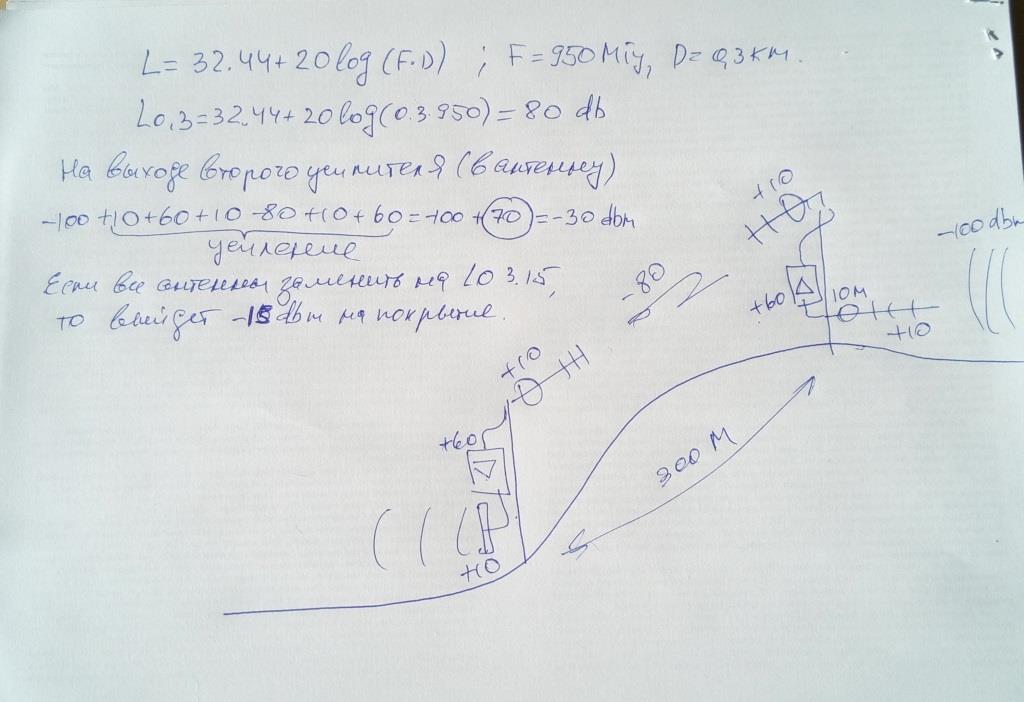 L = 32.44 + 20 log (F·D) ; F = 950 МГц, D = 0,3 км.
L0,3 = 32.44 + 20 log (0.3·950) = 80 db
На выходе второго усилителя (в антенну)
-100 +10+60+10 -80 +10 +60 = -100 + 70 = -30 dbm
усиление
Если все антенны заменить на LO 3.15,
то выйдет -15 dbm на покрытие.
+10
-100 dbm
-80
+60
10м
+10
+10
+60
300 М
+10